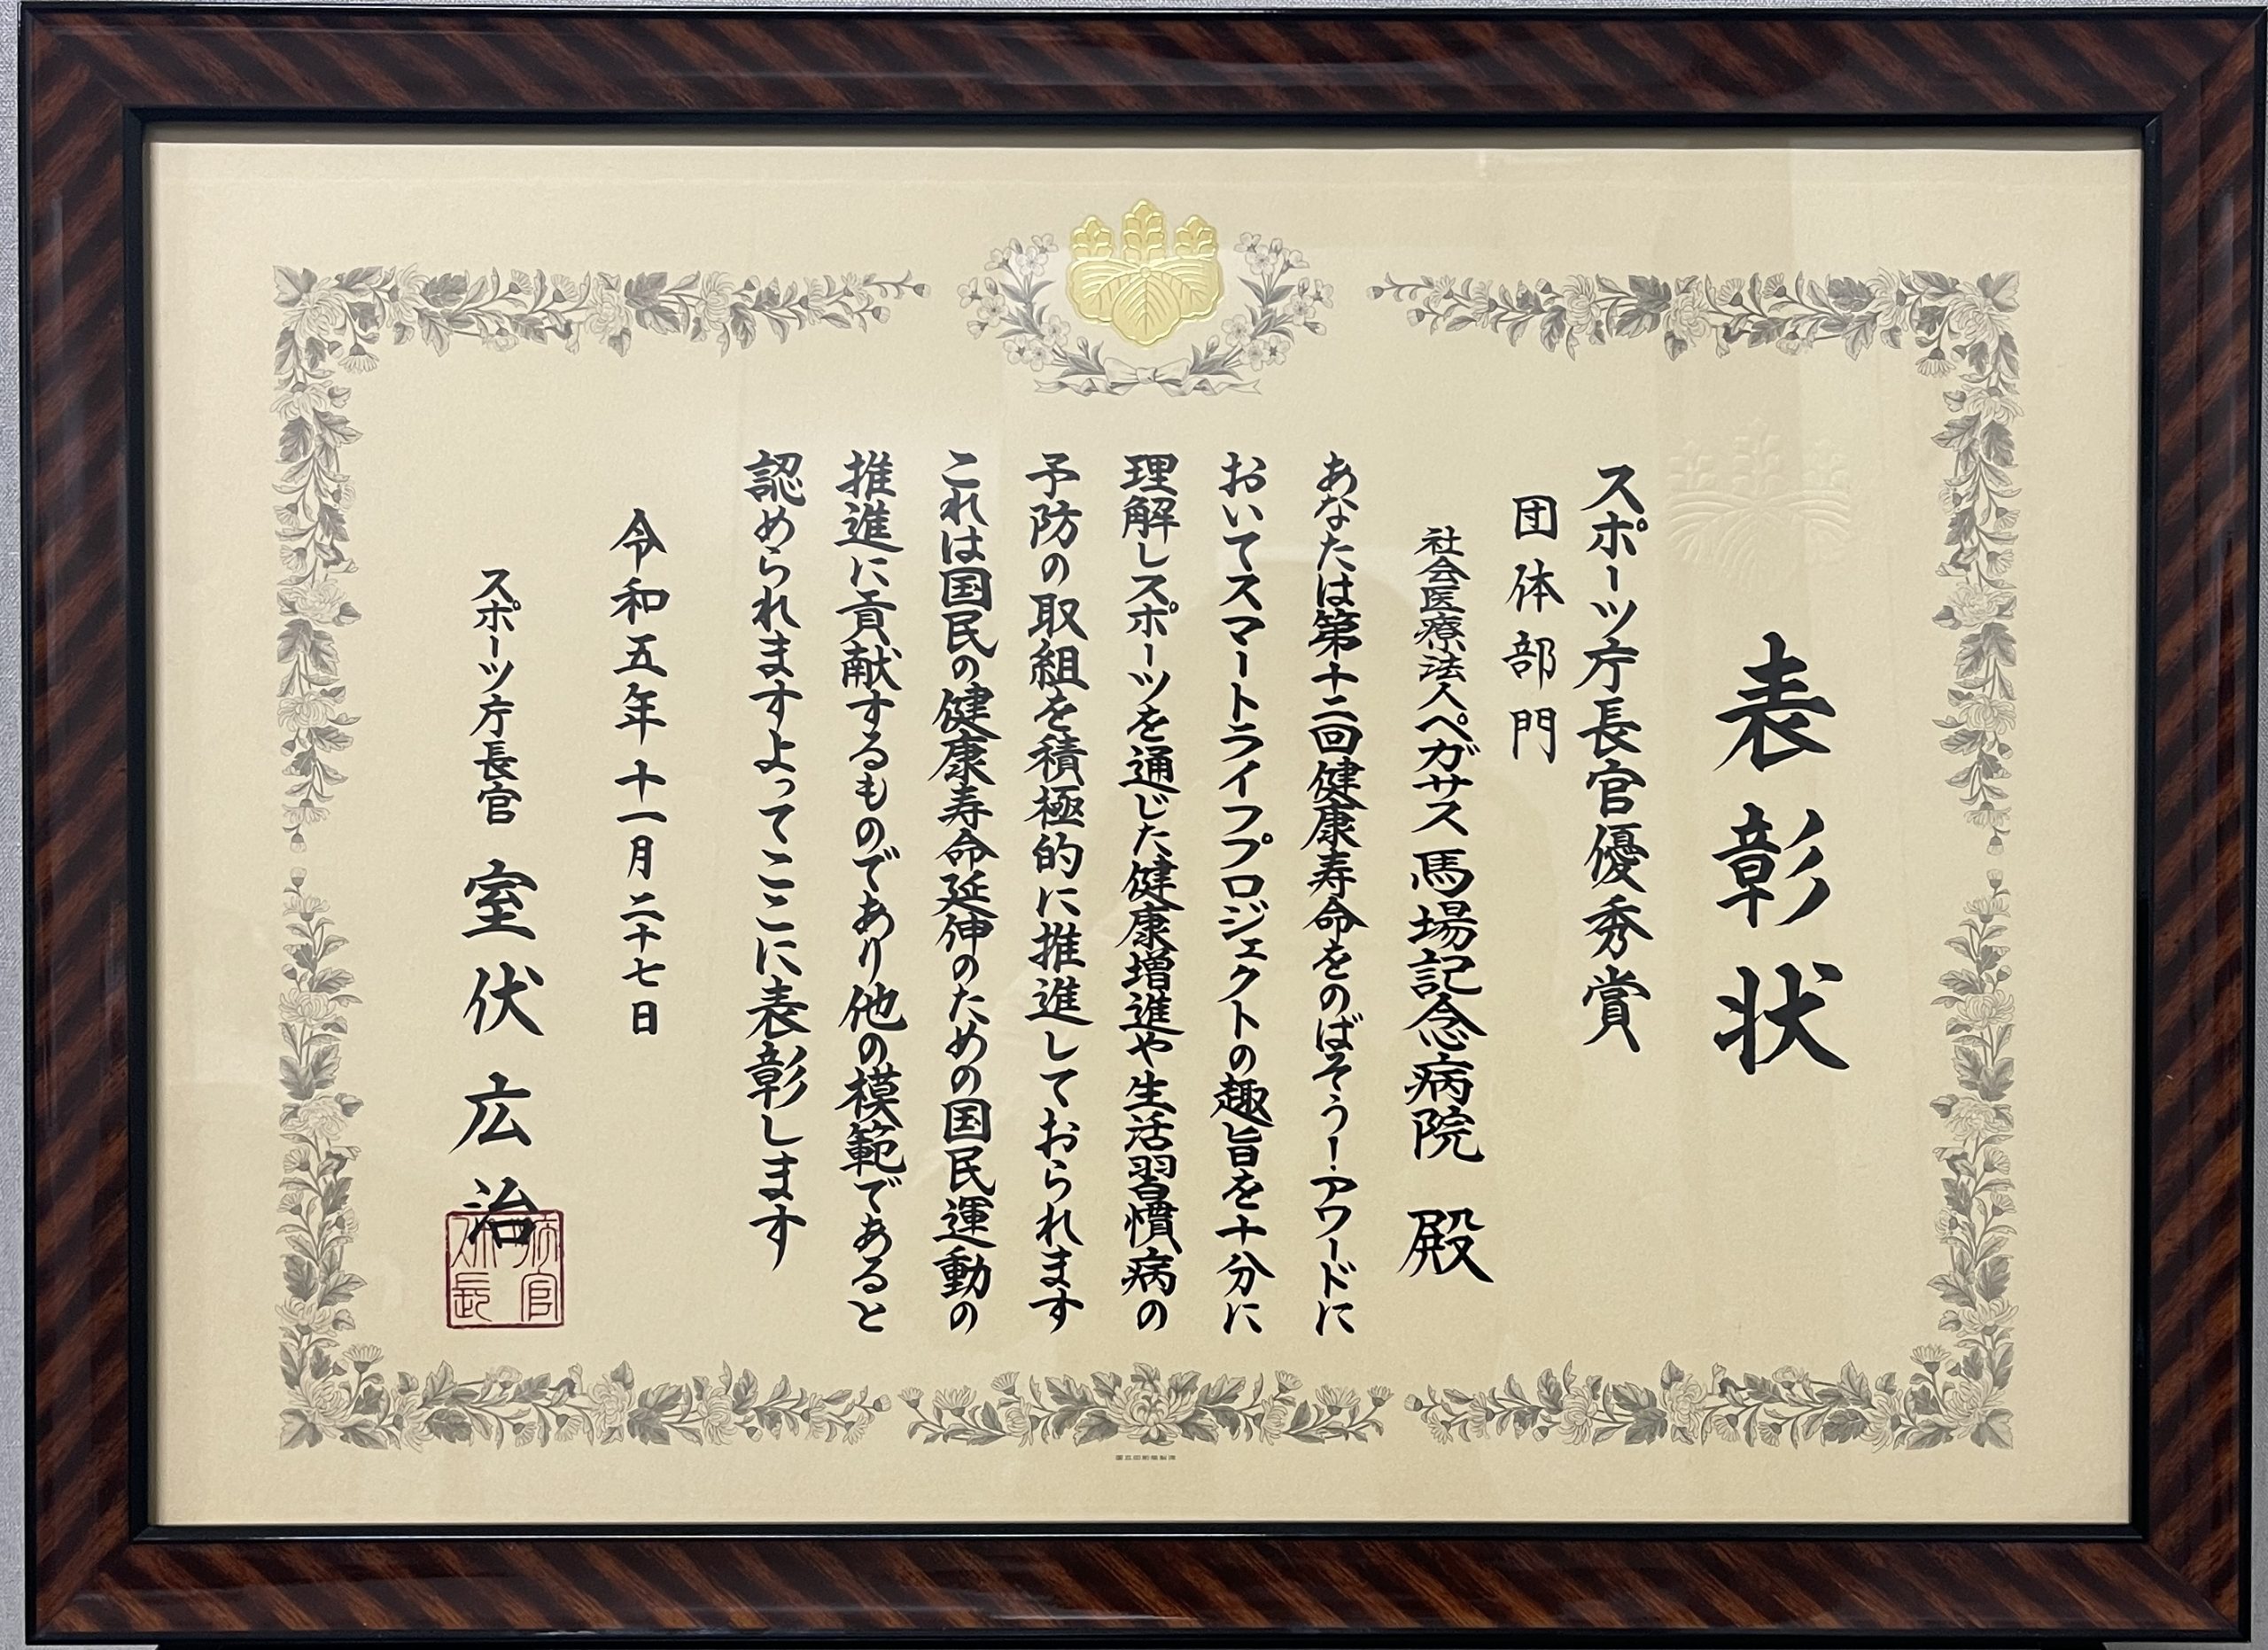 表彰状
スポーツ庁長官優秀賞
団体部門
社会医療法人ペガサス 馬場記念病院 殿
あなたは第十二回健康寿命をのばそう！アワードに
おいてスマートライフプロジェクトの趣旨を十分に
理解しスポーツを通じた健康増進や生活習慣病の
予防の取組を積極的に推進しておられます
これは国民の健康寿命延伸のための国民運動の
推進に貢献するものであり他の模範であると
認められますよってここに表彰します
令和五年十一月二十七日
スポーツ庁長官 室伏広治